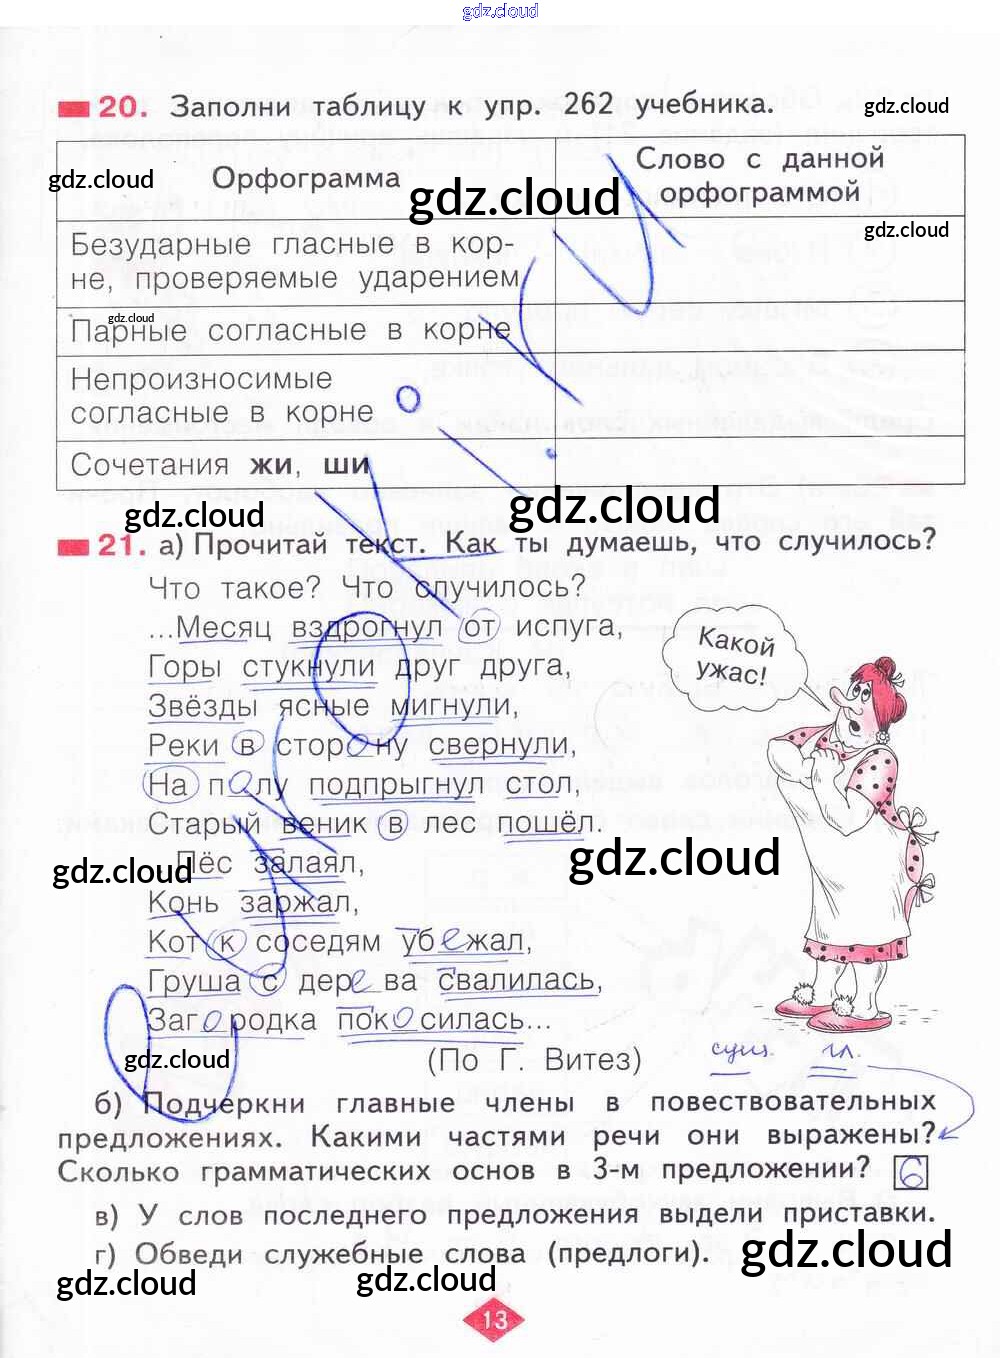 gdz.cloud
20. Заполни таблицу к упр. 262 учебника.
gdz.cloud
Орфограмма
Слово с данной
орфограммой
gdz.cloud
gdz.cloud
gdz.cloud
Безударные гласные в кор-
не, проверяемые ударением
gdz.cloud
Парные согласные в корне
Непроизносимые
согласные в корне
Сочетания жи, ши
gdz.cloud
gdz.cloud
21. а) Прочитай текст. Как ты думаешь, что случилось?
Что такое? Что случилось?
...Месяц вздрогнул от испуга,
Горы стукнули друг друга,
Звёзды ясные мигнули,
Реки в сторону свернули,
На полу подпрыгнул стол,
Старый веник в лес пошёл.
Какой
ужас!
gdz.cloud
gdz.cloud
...Пёс залаял,
Конь заржал,
Кот к соседям убежал,
Груша с дерева свалилась,
Загородка покосилась...
(По Г. Витез)
gdz.cloud
сущ. гл.
б) Подчеркни главные члены в повествовательных
предложениях. Какими частями речи они выражены?
Сколько грамматических основ в 3-м предложении? 6
в) У слов последнего предложения выдели приставки.
г) Обведи служебные слова (предлоги).
gdz.cloud
gdz.cloud
gdz.cloud
13